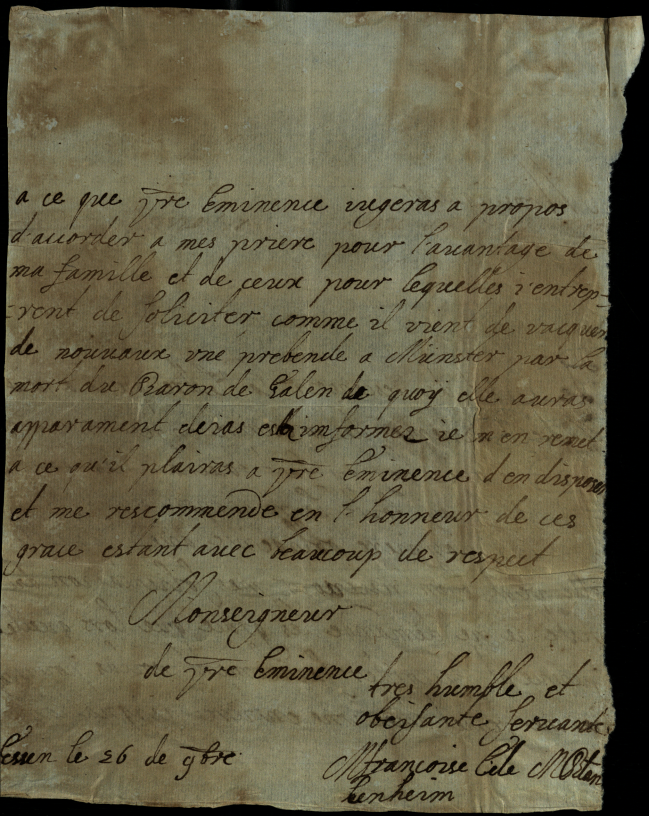 a ce que vre Eminence iugeras a propos
d'accorder a mes priere pour l'auantage de
ma famille et de ceux pour lequelles i'entrep-
-rent de soliciter, comme il vient de vacquer
de nouuaux vne prebende a Münster par la
mort du Baron de Galen de quoÿ elle auras
apparament deias estè imformez ie m'en remet
a ce qu'il plairas a vre Eminence d'en disposer
et me rescommende en l'honneur de ces
grace estant auec beaucoup de respect
Monseigneur
de vre Eminence
tres humble et
obeisante seruante
Essen le 26 de 9bre
françoise